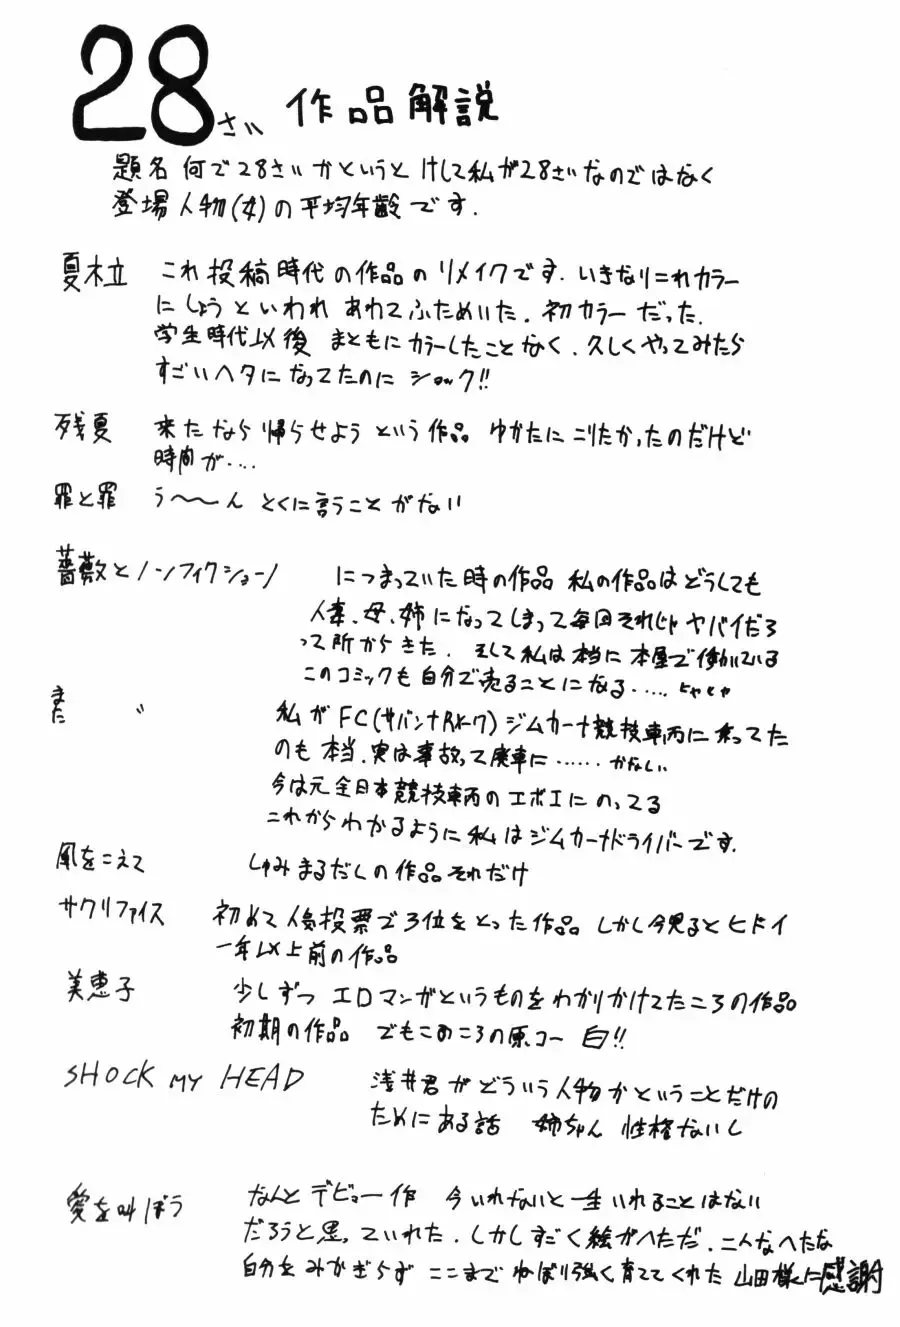 28さい 作品解説
題名 何で28さいかというと けして私が28さいなのではなく
登場人物(女)の平均年齢です.
夏木立 これ投稿時代の作品のリメイクです. いきなりこれカラー
にしようといわれ あわてふためいた. 初カラーだった.
学生時代以後 まともにカラーしたことなく. 久しくやってみたら
すごいヘタになってたのに ショック!!
残夏 来たなら帰らせようという作品 ゆかたにこりたかったのだけど
時間が....
罪と罪 う〜〜ん とくに言うことがない
薔薇とノンフィクション につまっていた時の作品 私の作品はどうしても
人妻、母、姉になってしまって毎回それじゃヤバイだろ
って所からきた. そして私は本当に本屋で働いている
このコミックも自分で売ることになる..... とゃとゃ
また 〃 私がFC(サバンナRX-7)ジムカーナ競技車両に乗ってた
のも本当. 実は事故って廃車に...... かなしい
今は元全日本競技車両のエボIにのってる
これからわかるように私はジムカーナドライバーです.
風をこえて しゅみまるだしの作品それだけ
サクリファイス 初めて人気投票で3位をとった作品 しかし今見るとヒドイ
一年以上前の作品
美恵子 少しずつ エロマンガというものをわかりかけてたころの作品
初期の作品 でもこのころの原コー 白!!
SHOCK MY HEAD 浅井君がどういう人物かということだけの
ためにある話 姉ちゃん 性格ないし
愛を叫ぼう なんとデビュー作 今いれないと一生いれることはない
だろうと思っていれた. しかしすごく絵がへただ. こんなへたな
自分をみかぎらず ここまでねばり強く育ててくれた 山田様に感謝